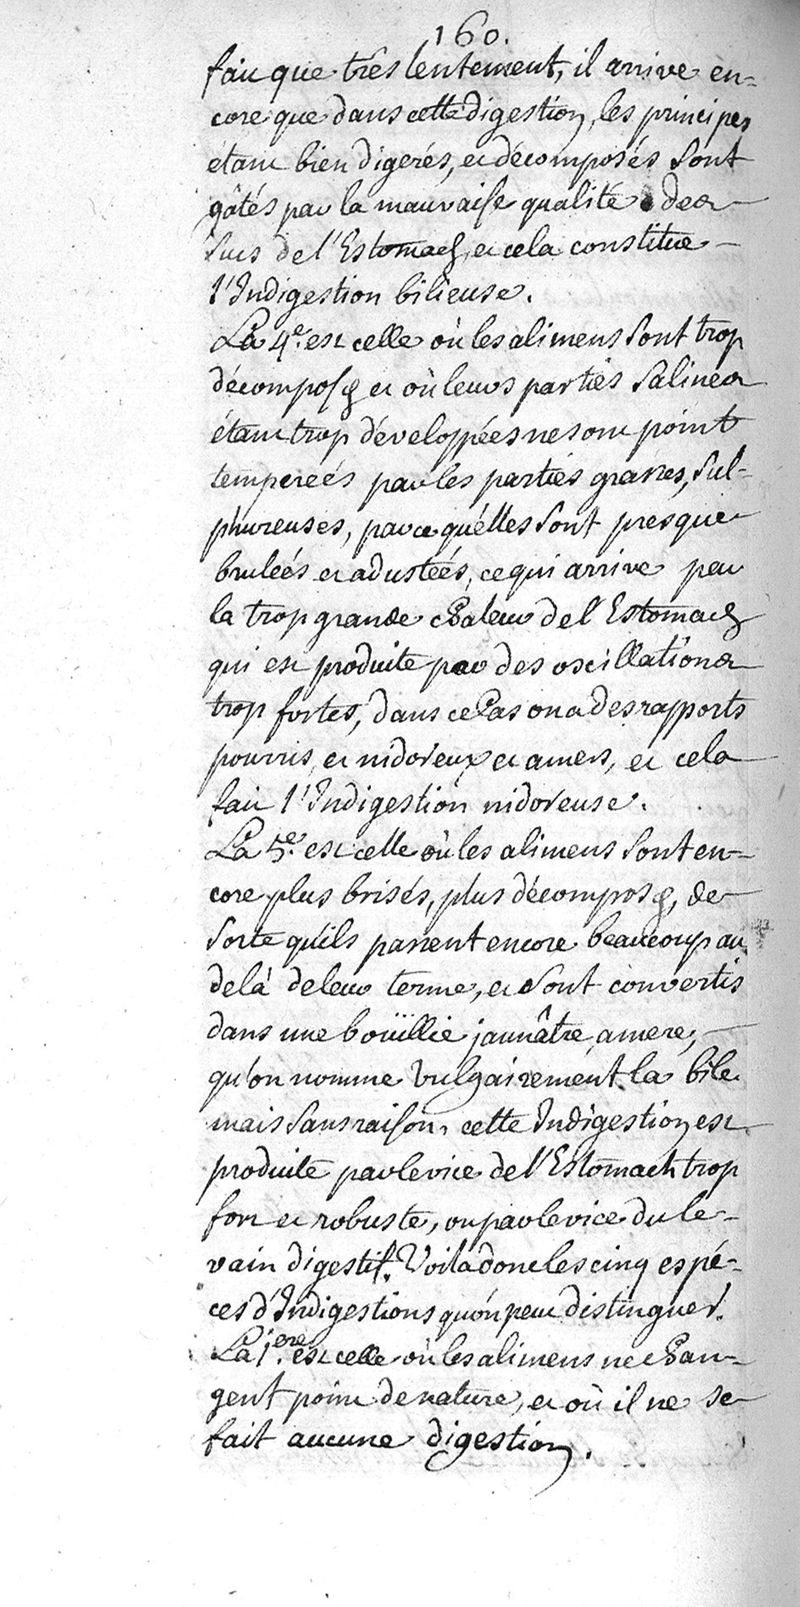 160.
fait que très lentement, il arrive en-
core que dans cette digestion, les principes
étant bien digerés, et décomposés sont
gâtés par la mauvaise qualité des
sucs de l'Estomach, et cela constitue
l'Indigestion bilieuse.
La 4e. est celle où les alimens sont trop
décomposés et où leurs parties salines
étant trop développées ne sont point
temperées par les parties grasses, sul-
phureuses, parce qu'elles sont presque
brulées et adustées, ce qui arrive par
la trop grande chaleur de l'Estomach
qui est produite par des oscillations
trop fortes, dans ce Cas on a des rapports
pourris, et nidoreux et amers, et cela
fait l'Indigestion nidoreuse.
La 5e. est celle où les alimens sont en-
core plus brisés, plus décomposés, de
sorte qu'ils passent encore beaucoup au
delà de leur terme, et sont convertis
dans une boüillie jaunâtre, amere,
qu'on nomme vulgairement la bile
mais sans raison, cette Indigestion est
produite par le vice de l'Estomach trop
fort et robuste, ou par le vice du le-
vain digestif. Voila donc les cinq espé-
ces d'Indigestions qu'on peut distinguer.
La 1ere. est celle où les alimens ne chan-
gent point de nature, et où il ne se
fait aucune digestion.